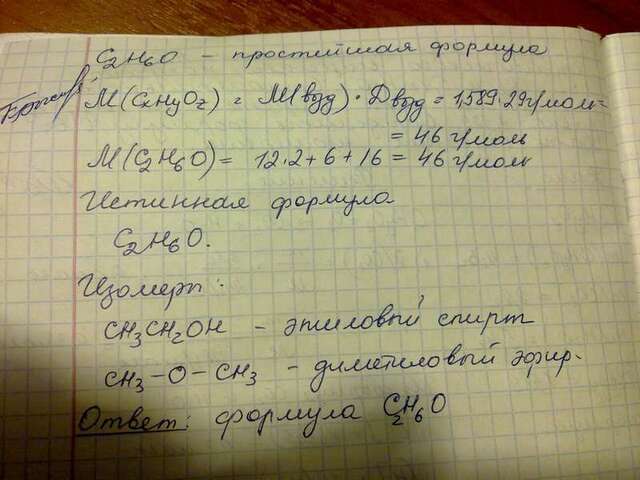 C₂H₆O - простейшая формула
M(CxHyOz) = M(возд) · Dвозд = 1,589·29 г/моль =
= 46 г/моль
M(C₂H₆O) = 12·2+6+16 = 46 г/моль
Истинная формула
C₂H₆O.
Изомеры:
CH₃CH₂OH - этиловый спирт
CH₃-O-CH₃ - диметиловый эфир.
Ответ: формула C₂H₆O